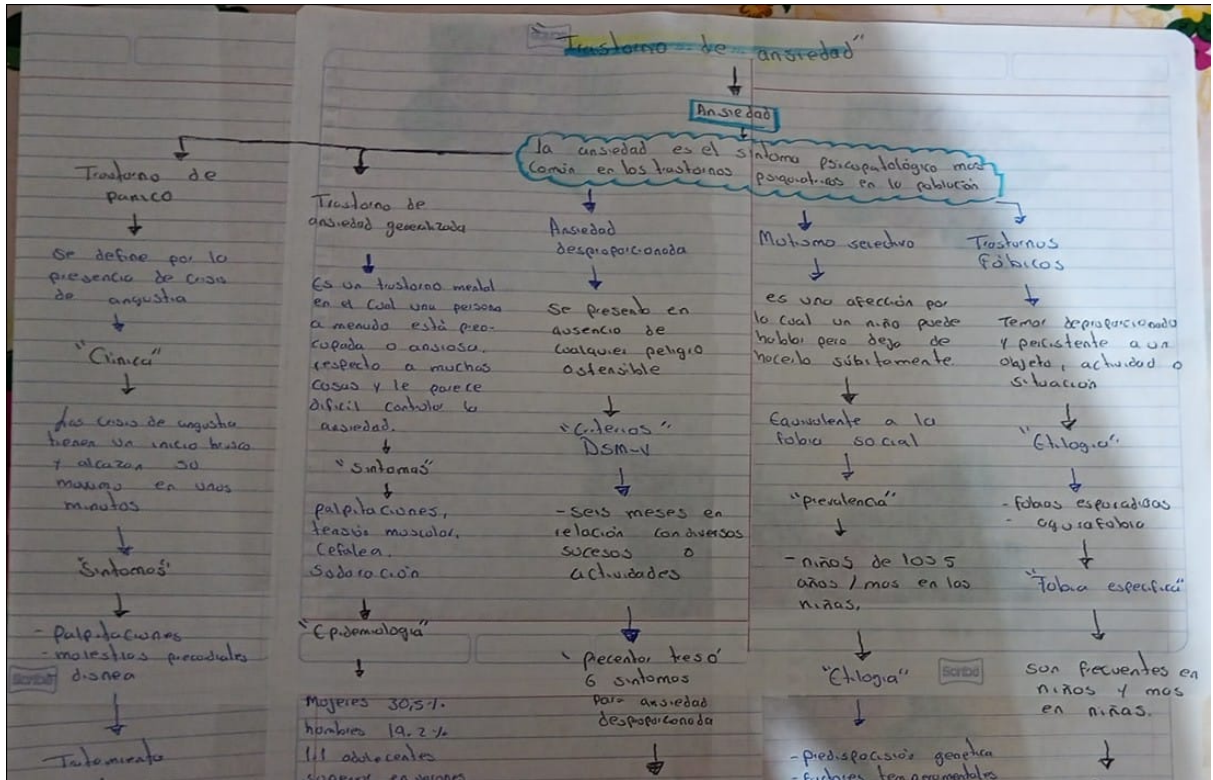 "Trastorno de ansiedad"
Ansiedad
la ansiedad es el sintoma psicopatológico mas
común en los trastornos psiquiatricos en la población
Trastorno de
panico
se define por la
presencia de crisis
de angustia
"Clinica"
Las crisis de angustia
tienen un inicio brusco
y alcazan su
maximo en unos
minutos
"Sintomas"
- Palpitaciones
- molestias precodiales
disnea
Tratamiento
Trastorno de
ansiedad generalizada
Es un trastorno mental
en el cual una persona
a menudo está preo-
cupada o ansiosa
respecto a muchas
cosas y le parece
dificil controlar la
ansiedad.
"Sintomas"
palpitaciones,
tensión muscular,
Cefalea.
Sodoración
"Epidemiologia"
Mujeres 30,5%.
hombres 19.2%
1.1 adolecentes
en varones
Ansiedad
desproporcionada
Se presenta en
ausencia de
cualquier peligro
ostensible
"Criterios"
DSM-V
- seis meses en
relación con diversos
sucesos o
actividades
6 sintomas
para ansiedad
desproporcionada
Mutismo selectivo
es una afección por
la cual un niño puede
hablar pero deja de
hacerlo súbitamente
Equivalente a la
fobia social
"prevalencia"
- niños de los 5
años / mas en las
niñas.
"Etilogia"
- predisposición genetica
- factores temperamentales
Trastornos
Fóbicos
Temor desproporcionado
y percistente a un
objeto, actividad o
situación
"Etilogia"
- fobias esporadicas
- agorafobia
"Fobia especifica"
son frecuentes en
niños y mas
en niñas.
Scribe
Scribe